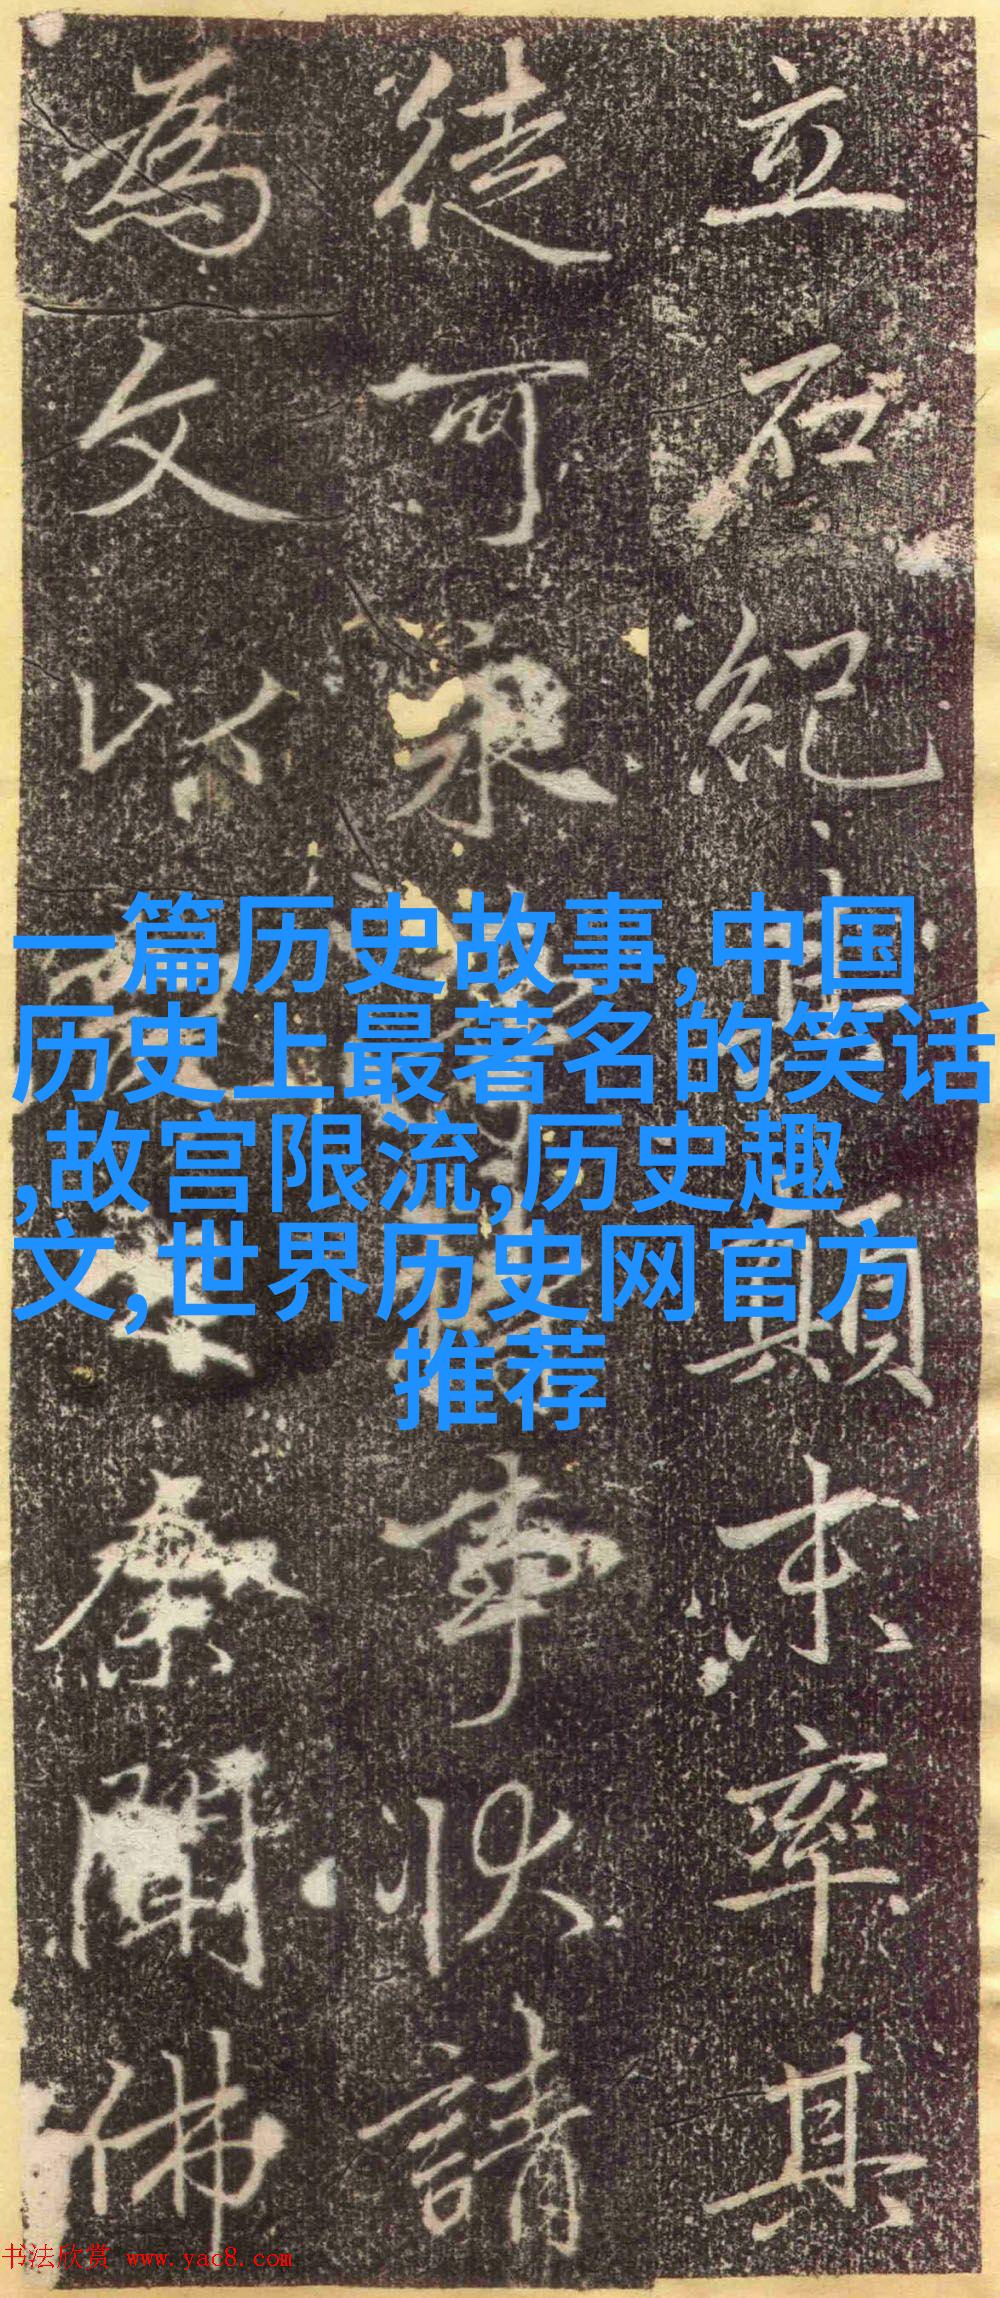 立石紀顛末率其
徒可永事狀請
為文以聞佛
一篇历史故事,中国
历史上最著名的笑话
,故宫限流,历史趣
文,世界历史网官方
推荐
书法欣赏 www.yac8.com